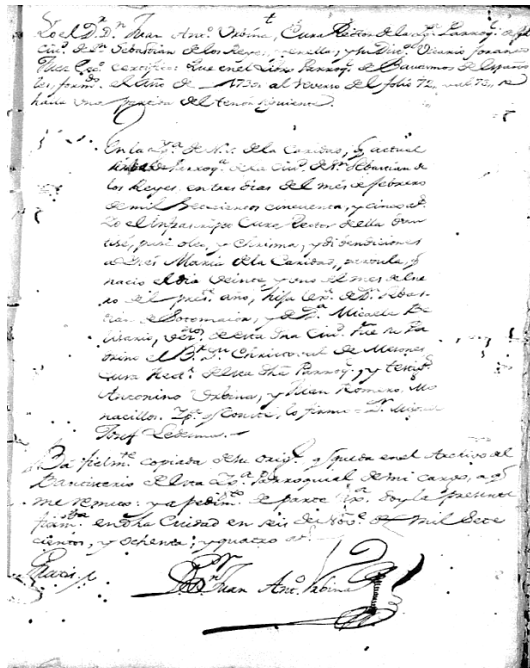 Yo el D.r D.n Juan Ant.o Urbina, Cura Rector de la Igl.a Parroq.l de esta
ciu.d de S.n Sebastian de los Reyes, y en ella, y su Vicario foraneo
Juez certifico: Que en el Libro Parroq.l de Bautismos de Españo
les, form.do el Año de 1730, al reverso del folio 72, se
halla una del tenor siguiente
En la Ig.a de N.ra S.ra de la Caridad, actual
Parroq.l de la Ciu.d de S.n Sebastian de
los Reyes, en tres dias del mes de febrero
de mil setecientos cincuenta, y cinco a.s
Yo el infrascripto Cura Rector de ella bau
tisé, puse oleo, y Chrisma, y di bendiciones
a Inés Maria de la Caridad, parvula, q.e
nacio el dia veinte y uno del mes de Ene
ro del pres.te año, hija leg.ma de D.n Sebas
tian de Sotomaior, y de D.a Micaela
vecinos de esta dha Ciu.d fue su Pa
drino el B.r D.n Christoval de Mesones
Cura Rect.r de esta dha Parroq.l, y testig.s
Antonino Urbina, y Juan Romero, Mo
nacillos. Y p.a q.e conste, lo firmo = D.n Miguel
Josef Ledesma
Va fielm.te copiada de su orig.l q.e queda en el Archivo del
Baptisterio de esta Ig.a Parroquial de mi cargo, a q.e
me remito: y a pedim.to de parte doy la presente
firm.da en dha Ciudad en seis de Nov.e de mil Sete
cientos, y ochenta, y quatro a.s
Gratis
D.r Juan Ant.o Urbina